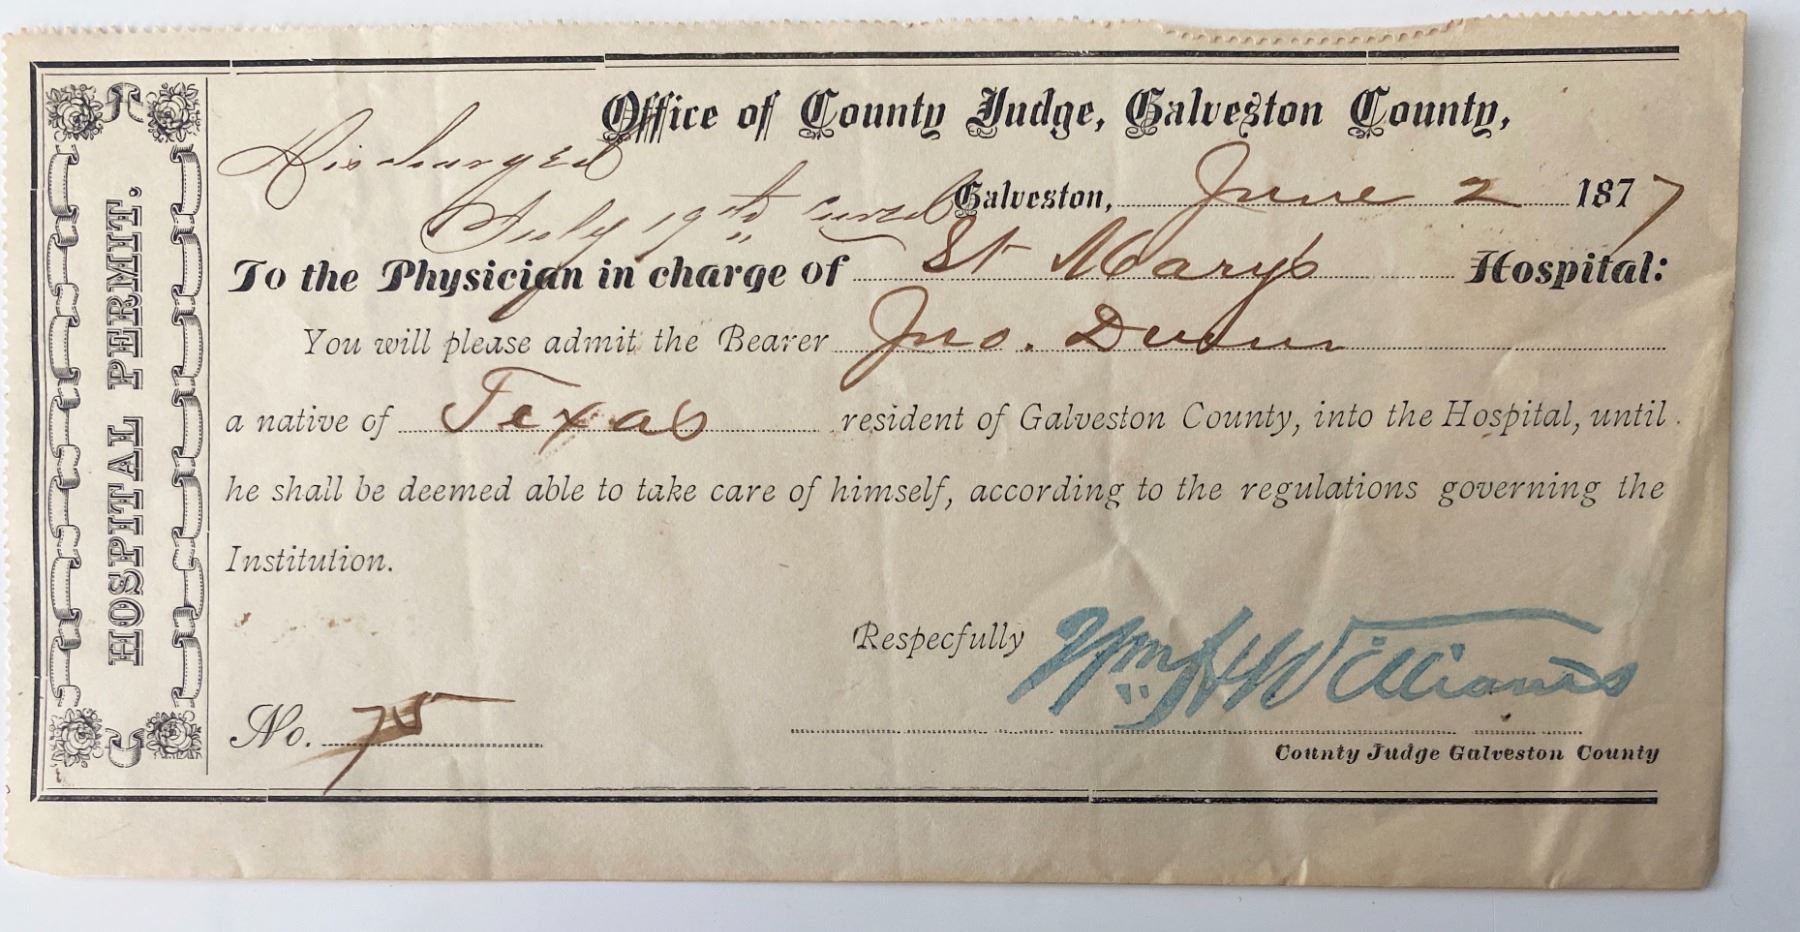 HOSPITAL PERMIT.
Office of County Judge, Galveston County,
Discharged
July 19th cured
Galveston, June 2 1877
To the Physician in charge of St Mary's Hospital:
You will please admit the Bearer Jno. Dunn
a native of Texas resident of Galveston County, into the Hospital, until
he shall be deemed able to take care of himself, according to the regulations governing the
Institution.
Respecfully Wm H Williams
No. 75
County Judge Galveston County